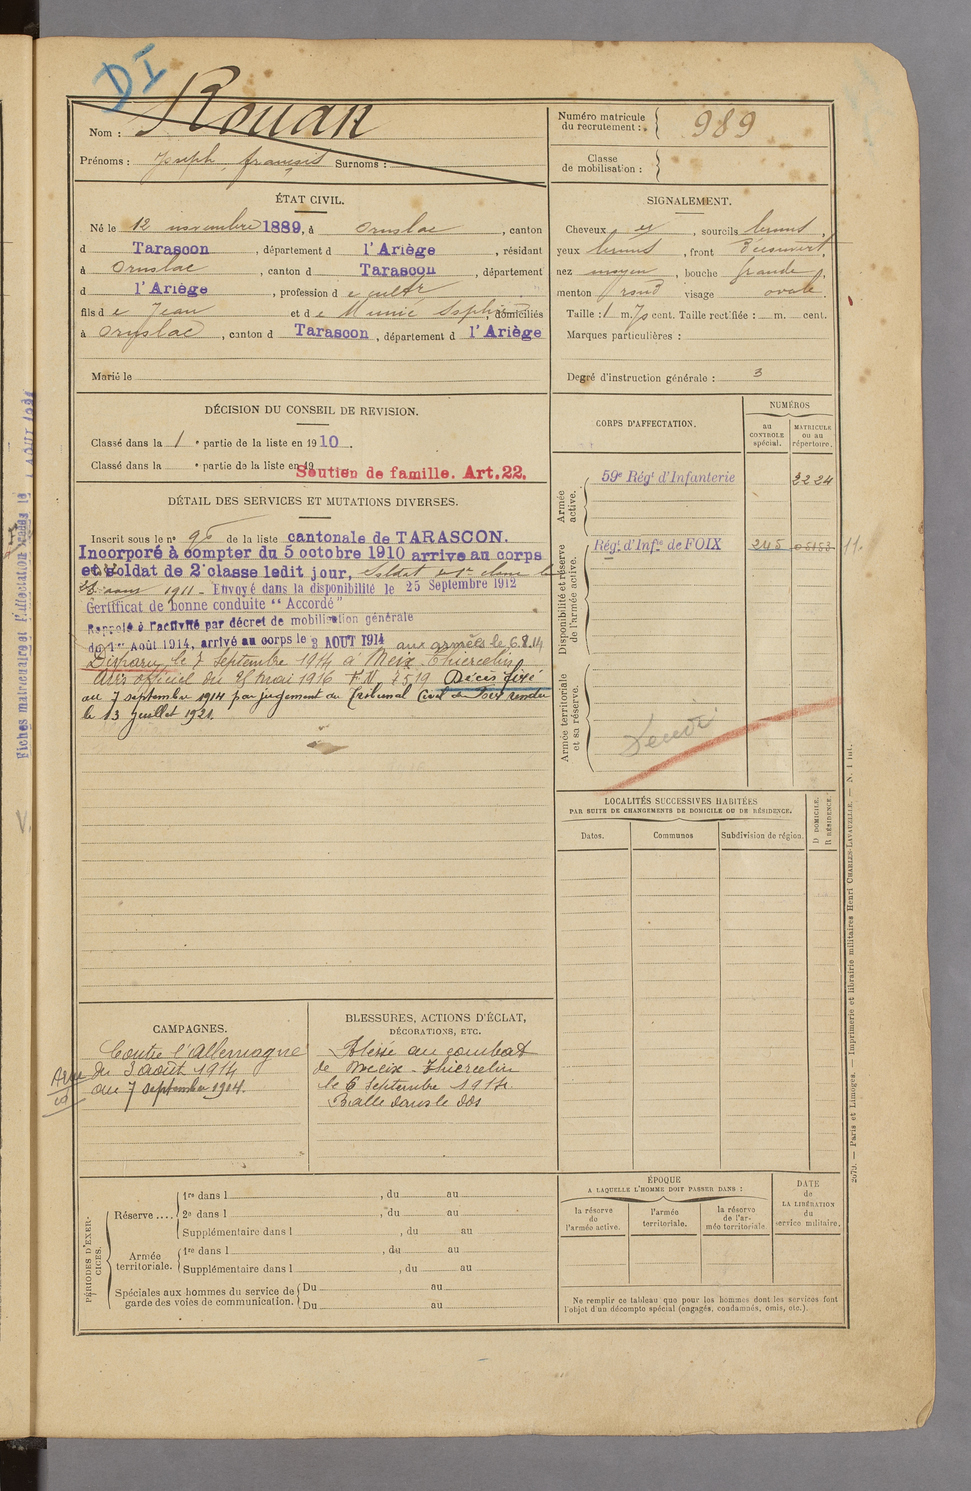 DI
Nom : Rouan
Prénoms : Joseph, françois Surnoms :
Numéro matricule du recrutement : 989
Classe de mobilisation :
ÉTAT CIVIL.
Né le 12 novembre 1889, à Ornolac, canton
d Tarascon, département d l'Ariège, résidant
à Ornolac, canton d Tarascon, département
d l'Ariège, profession d e cultr
fils de Jean et de Munié Sophie, domiciliés
à Ornolac, canton d Tarascon, département d l'Ariège
Marié le
SIGNALEMENT.
Cheveux et, sourcils bruns,
yeux bruns, front Découvert,
nez moyen, bouche grande,
menton rond visage ovale.
Taille : 1 m. 70 cent. Taille rectifiée : m. cent.
Marques particulières :
Degré d'instruction générale : 3
DÉCISION DU CONSEIL DE REVISION.
Classé dans la 1e partie de la liste en 1910.
Classé dans la e partie de la liste en 19
Soutien de famille. Art. 22.
DÉTAIL DES SERVICES ET MUTATIONS DIVERSES.
Inscrit sous le n° de la liste cantonale de TARASCON.
Incorporé à compter du 5 octobre 1910 arrive au corps
et soldat de 2e classe ledit jour, Soldat de 1re classe le
1911 - Envoyé dans la disponibilité le 25 Septembre 1912
Certificat de bonne conduite "Accordé"
Rappelé à l'activité par décret de mobilisation générale
du 1er Août 1914, arrivé au corps le 3 AOUT 1914 aux armées le 6.8.14
Disparu le 7 Septembre 1914 à Meix Thiercelin
Avis officiel du 25 mai 1916 F.N. 4519 Décès fixé
au 7 septembre 1914 par jugement du Tribunal Civil de Foix rendu
le 13 juillet 1921.
CORPS D'AFFECTATION.
NUMÉROS
au CONTROLE spécial.
MATRICULE ou au répertoire.
Armée active.
59e Régt d'Infanterie 3224
Disponibilité et réserve de l'armée active.
Régt d'Infie de FOIX 245 05153 11.
Armée territoriale et sa réserve.
LOCALITÉS SUCCESSIVES HABITÉES
PAR SUITE DE CHANGEMENTS DE DOMICILE OU DE RÉSIDENCE.
Dates.
Communes
Subdivision de région.
D DOMICILE.
R RÉSIDENCE.
CAMPAGNES.
Contre l'Allemagne
du 3 août 1914
au 7 septembre 1914.
BLESSURES, ACTIONS D'ÉCLAT,
DÉCORATIONS, ETC.
Blessé au combat
de Meix - Thiercelin
le 6 Septembre 1914
Balle dans le dos
PÉRIODES D'EXERCICES.
Réserve ....
1re dans l , du au
2e dans l , du au
Supplémentaire dans l , du au
Armée territoriale.
1re dans l , du au
Supplémentaire dans l , du au
Spéciales aux hommes du service de garde des voies de communication.
Du au
Du au
ÉPOQUE
A LAQUELLE L'HOMME DOIT PASSER DANS :
la réserve de l'armée active.
l'armée territoriale.
la réserve de l'armée territoriale
DATE de LA LIBÉRATION du service militaire.
Ne remplir ce tableau que pour les hommes dont les services font
l'objet d'un décompte spécial (engagés, condamnés, omis, etc.).
2679. — Paris et Limoges. — Imprimerie et librairie militaires Henri CHARLES-LAVAUZELLE. — N. 1 int.